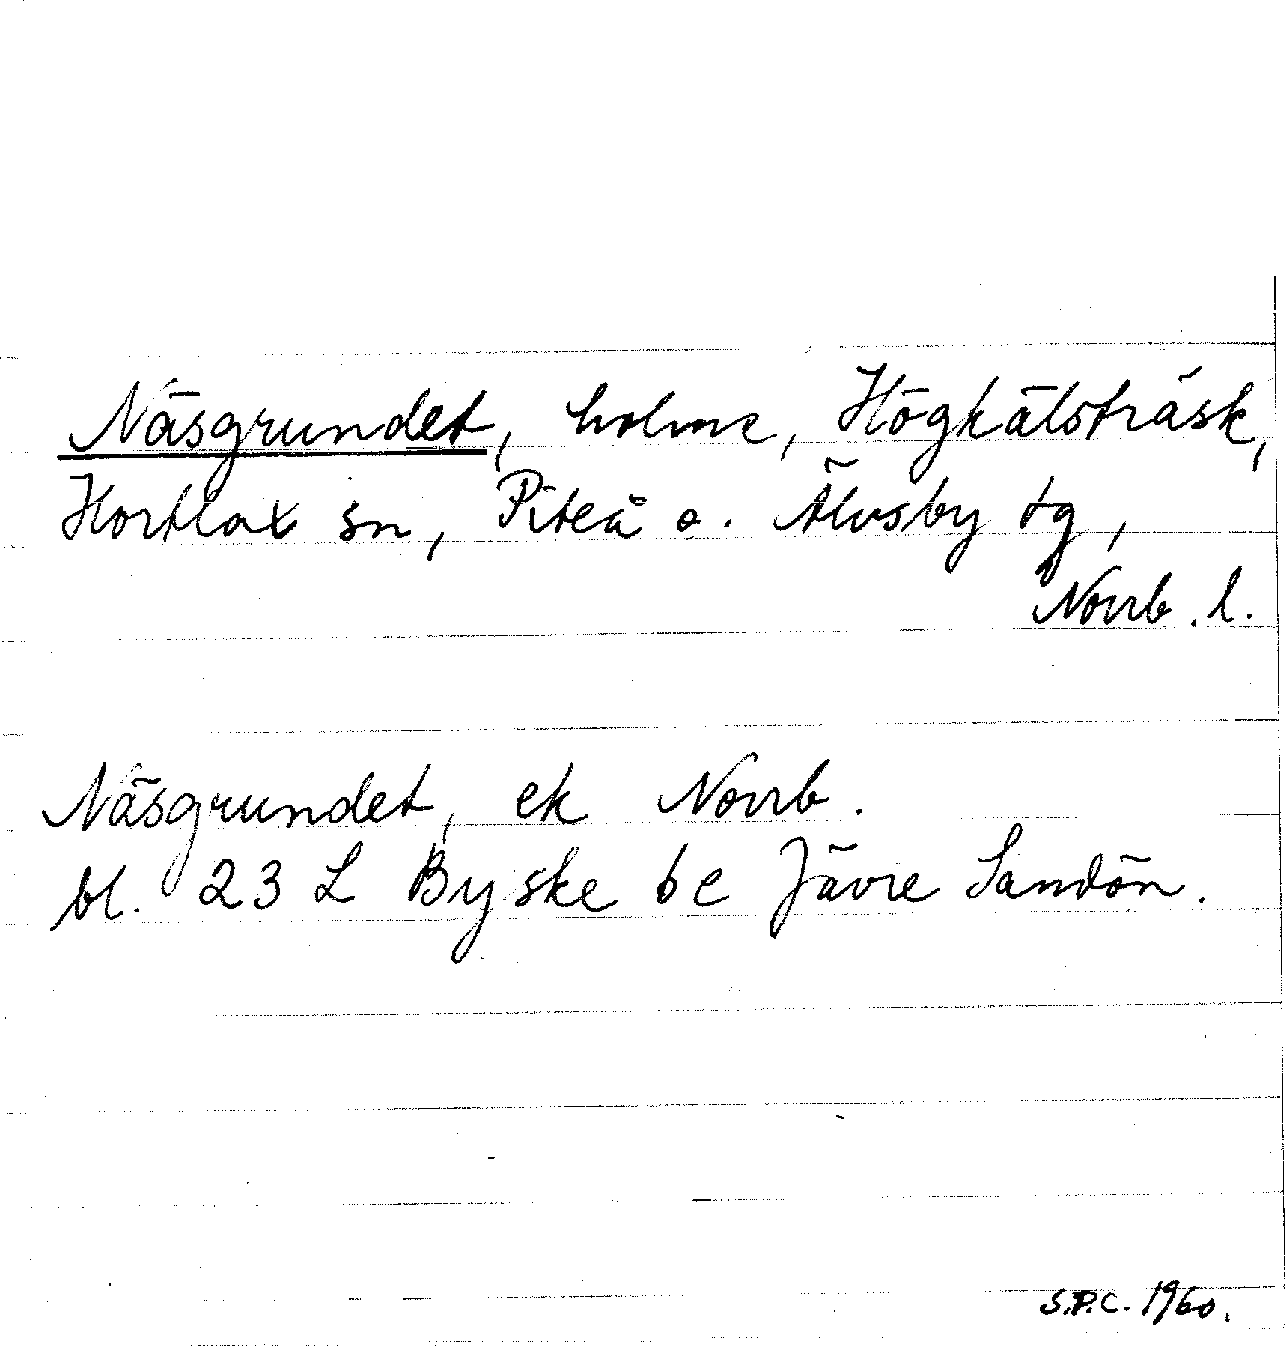 Näsgrundet, holme, Högkälsträsk,
Hortlax sn, Piteå o. Älvsby tg,
Norrb. l.
Näsgrundet, ek Norrb.
bl. 23 L Byske be Jävre Sandön.
S.P.C. 1960.